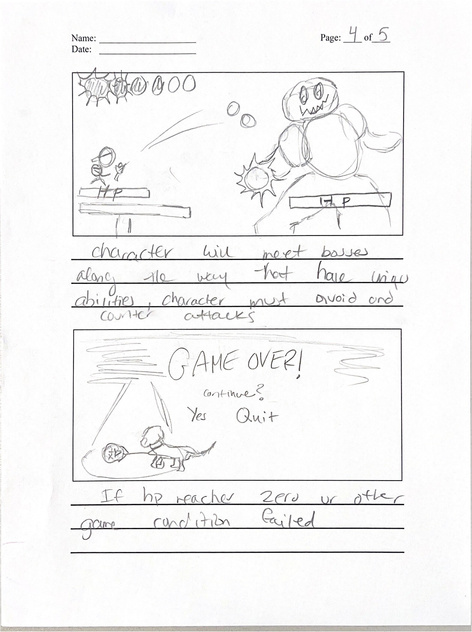 Name:
Page: 4 of 5
Date:
HP
HP
character will meet bosses
along the way that have uniqu
abilities, character must avoid and
counter attacks
GAME OVER!
continue?
Yes Quit
If hp reaches zero or other
game condition failed